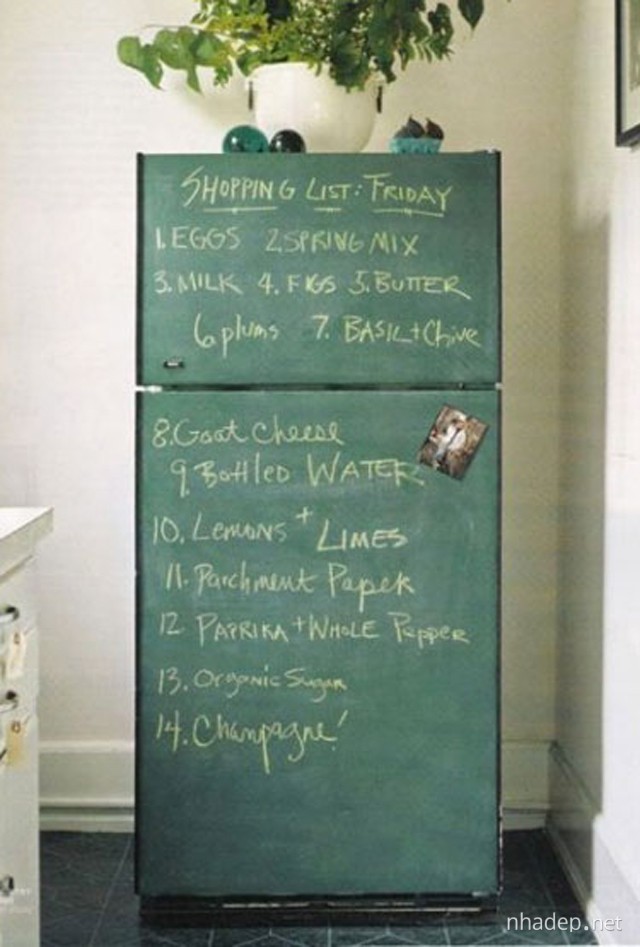 SHOPPING LIST: FRIDAY
1. EGGS 2. SPRING MIX
3. MILK 4. FIGS 5. BUTTER
6 plums 7. BASIL + Chive
8. Goat cheese
9. Bottled WATER
10. Lemons + LIMES
11. Parchment Paper
12 PAPRIKA + WHOLE Pepper
13. Organic Sugar
14. Champagne!
nhadep.net